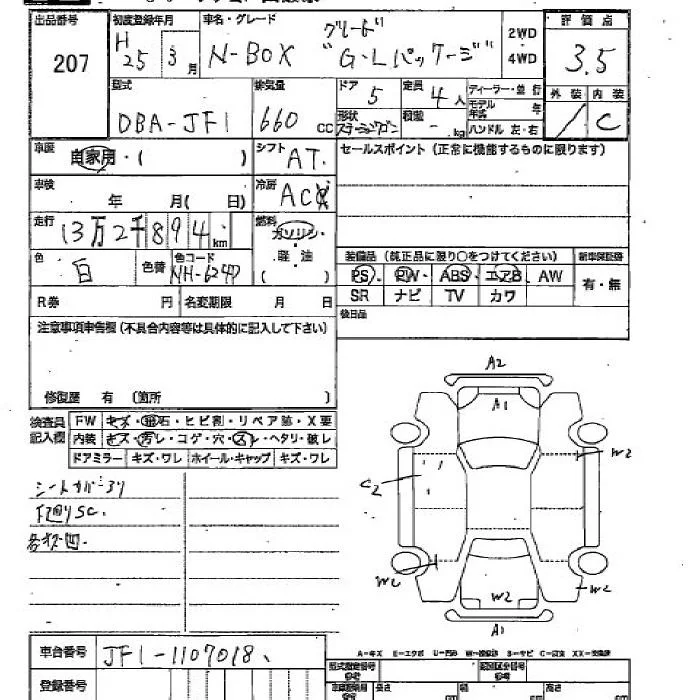 出品番号 初度登録年月 車名・グレード グレード 評価点
207 H 25 3月 N-BOX "G・Lパッケージ" 2WD・4WD 3.5
型式 排気量 ドア 定員 ディーラー・並行 外装 内装
DBA-JF1 660cc 5 4人 モデル年式 年 C
形状 積載 ハンドル 左・右
ステーションワゴン - .kg
車歴 自家用・( ) シフト AT. セールスポイント (正常に機能するものに限ります)
車検 年 月( 日) 冷房 AC
走行 13万2千894km 燃料 ガソリン・軽油・( )
色 白 色替 色コード NH-624P
装備品 (純正品に限り○をつけてください) 新車保証書
PS・PW・ABS・エアB・AW 有・無
SR ナビ TV カワ
R券 円 名変期限 月 日 後日品
注意事項申告欄(不具合内容等は具体的に記入して下さい)
修復歴 有 (箇所 )
検査員記入欄 FW キズ・飛石・ヒビ割・リペア跡・X要
内装 キズ・汚レ・コゲ・穴・スレ・ヘタリ・破レ
ドアミラー キズ・ワレ ホイール・キャップ キズ・ワレ
シートカバー
下廻りSC.
A2
A1
W2
W2
W2
A1
車台番号 JF1-1107018
登録番号
A-キズ E-エクボ U-凹み S-サビ C-腐食
型式指定番号 類別区分番号
長さ cm 幅 cm 高さ cm